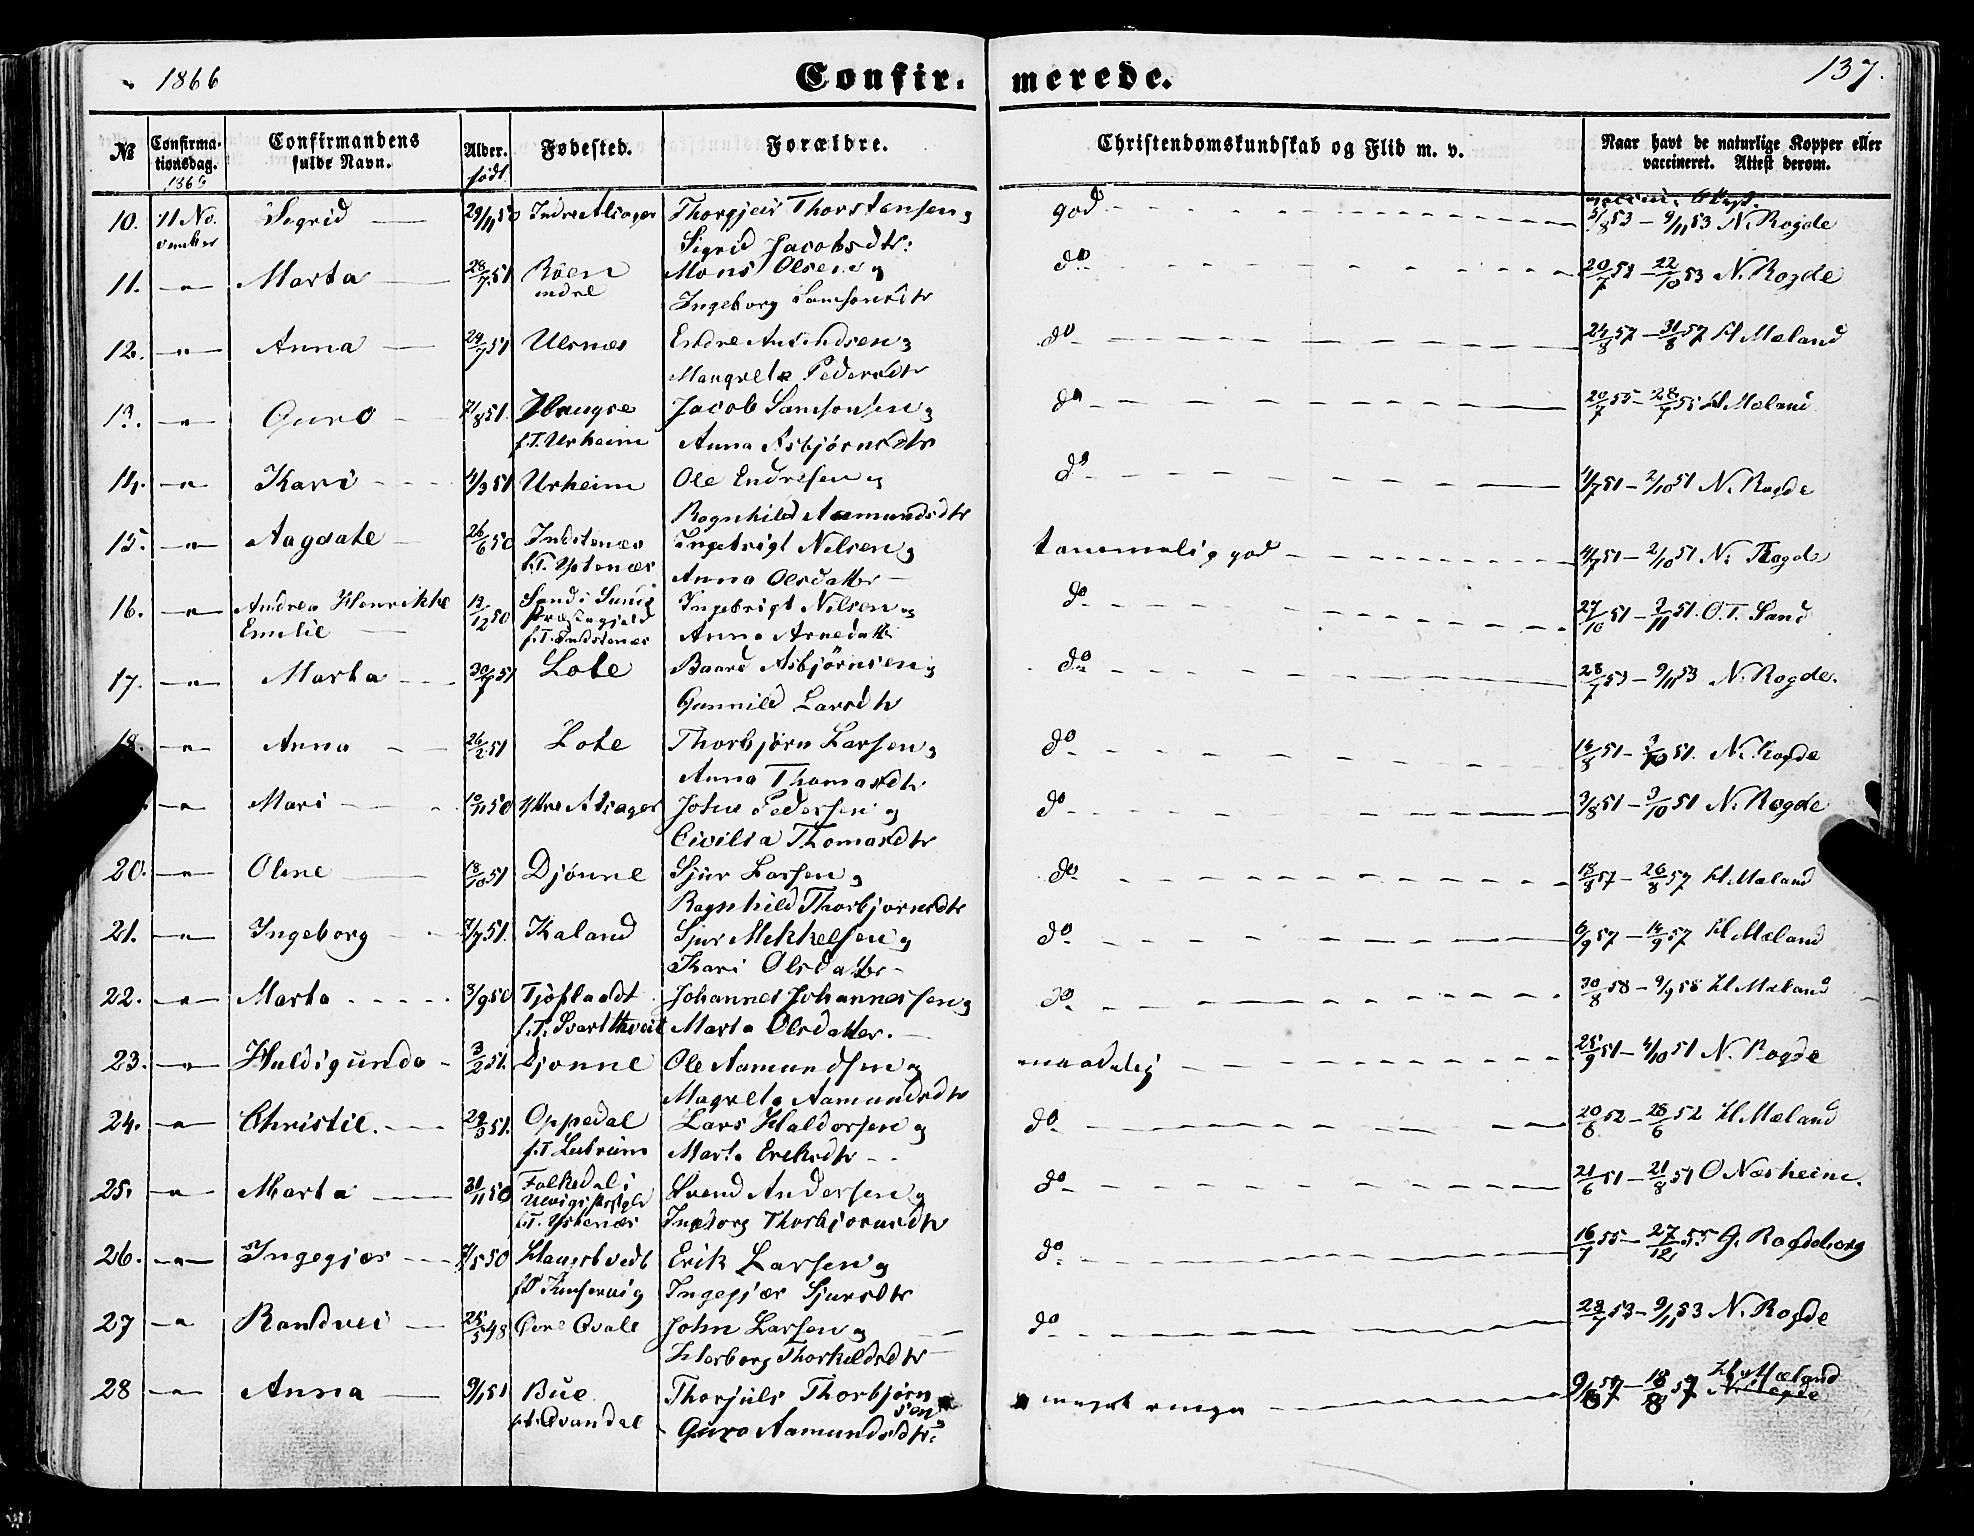 1866 Confir- merede. 137.
№ Confirmationsdag. 1866 Confirmandens fulde Navn. Alder. født Fødested. Forældre. Christendomskundskab og Flid m. v. Naar havt de naturlige Kopper eller vaccineret. Attest derom.
10. 11 No. Sigrid 29/11 50 Indre Alsager Thorgjeir Thorstensen og god N. Rogde
vember Sigrid Jacobsdtr: 9/11 53
11. Marta 28/7 51 Mons Olsen og do 20/7 53 - 22/10 53 N. Rogde
indre Ingeborg Samsonsdtr
12. Anna 24/7 51 Ulsnæs Endre Amundsen og do 24/8 57 - 31/8 57 H Mæland
Mangrete Pedersdtr
13. Guro 7/8 51. Hauge Jacob Samsonsen og do 20/7 55 - 28/7 55 H Mæland
f.T. Urheim Anna Asbjørnsdtr
14. Kari 4/3 51 Urheim Ole Endresen og do 4/7 51 - 2/10 51 N. Rogde
Ragnhild Aamundsdtr
15. Aagaate 26/6 50 Indstenæs Ingebrigt Nilsen og temmelig god 4/7 51 - 2/10 51 N. Rogde
f.T. Ystenæs Anna Olsdatter
16. Andrea Henrikke 13/12 50 Sand i Sunds Ingebrigt Nilsen og do 27/10 51 - 2/11 51. O. T. Sand
Emelie Præstegjeld Anna Arnedatter
f.T. Indstenæs
17. Marta 30/7 51 Lote Baard Asbjørnsen og do 28/7 53 - 9/11 53 N. Rogde.
Gunnild Larsdtr
18. Anna 26/2 51 Lote Thorbjørn Larsen og do 14/8 51 - 3/10 51. N. Rogde
Anna Thomasdtr
Mari 10/11 50 Ytre Alsager John Pedersen og do 3/8 51 - 3/10 51 N. Rogde
Civilia Thomasdtr
20. Oline 18/10 51 Djønne Sjur Larsen og do 18/8 57 - 26/8 57 H. Mæland
Ragnhild Thorbjørnsdtr
21. Ingeborg 7/7 51. Kaland Sjur Mikkelsen og do 6/9 57 - 14/9 57 H Mæland
Kari Olsdatter
22. Marta 3/9 50 Tjoflaadt Johannes Johannessen og do 30/8 58 - 9/9 58 H Mæland
f.T. Svartthveit Marta Olsdatter.
23. Huldigunda 3/2 51. Djønne Ole Aamundsen og maadelig 25/9 51 - 4/10 51 N. Rogde
Magrete Aamundsdtr
24. Christie. 29/3 51. Oppedal Lars Haldorsen og do 20/6 52 - 28/6 52 H Mæland
f.T. Lutreim Marta Eriksdtr
25. Marta 30/11 50 Folkedal i Svend Andersen og do 21/6 51 - 21/8 51 O Næsheim.
Ulvigs Præstgld Ingeborg Thorbjørnsdtr
f.T. Ystenæs
26. Ingegjær 7/5 50 Haugstvedt Erik Larsen og do 16/7 55 - 27/12 55 G. Rosseborg
f.T. Kinservig Ingegjær Sjursdtr
27 Randvei 25/5 48 Øvre Qvale John Larsen og do 28/7 53 - 9/11 53 N. Rogde
Herborg Thorkildsdtr
28 Anna 9/1 51 Büe Thorjuls Thorbjørn meget ringe 9/8 57 - 18/8 57 H. Mæland
f.t. Qvandal sen N. Rogde
Guro Aamundsdtr.